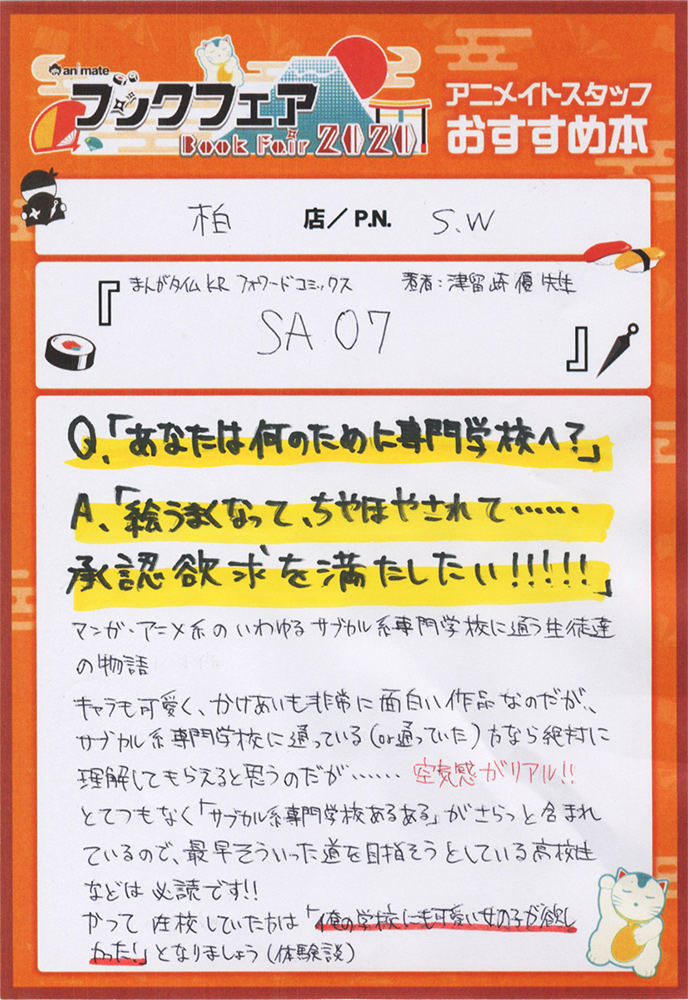 animate
ブックフェア
Book Fair 2020
アニメイトスタッフ
おすすめ本
柏 店/P.N. S.W
『まんがタイムKR フォワードコミックス 著者:津留崎優先生
SA07』
Q.「あなたは何のために専門学校へ?」
A.「絵うまくなって、ちやほやされて……
承認欲求を満たしたい!!!!!」
マンガ・アニメ系のいわゆるサブカル系専門学校に通う生徒達
の物語
キャラも可愛く、かけあいも非常に面白い作品なのだが、
サブカル系専門学校に通っている(or通っていた)方なら絶対に
理解してもらえると思うのだが…… 空気感がリアル!!
とてつもなく「サブカル系専門学校あるある」がさらっと含まれ
ているので、最早そういった道を目指そうとしている高校生
などは必読です!!
かつて在校していた方は「俺の学校にも可愛い女の子が欲し
かった!」となりましょう(体験談)